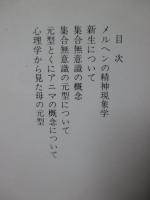 目次
メルヘンの精神現象学
新生について
集合無意識の概念
集合無意識の元型について
元型とくにアニマの概念について
心理学から見た母の元型